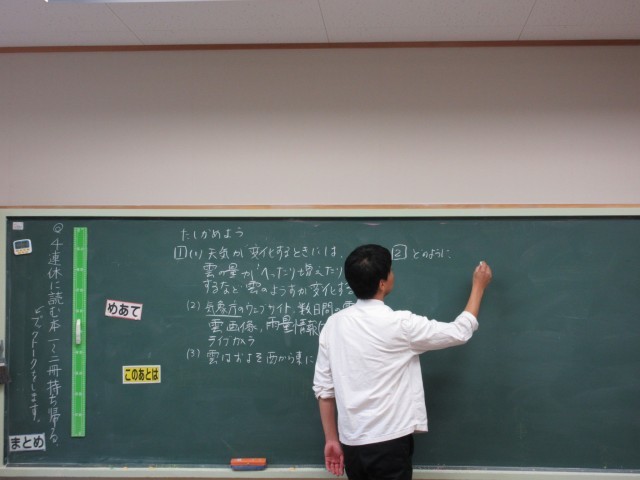 たしかめよう
1 (1) 天気が変化するときには、
雲の量がへったり増えたり
するなど雲のようすが変化する
(2) 気象庁のウェブサイト、数日間の雲
雲画像、雨量情報
ライブカメラ
(3) 雲はおよそ西から東に
2 どのように
4連休に読む本一〜二冊持ち帰る。
ブックトークをします。
めあて
このあとは
まとめ